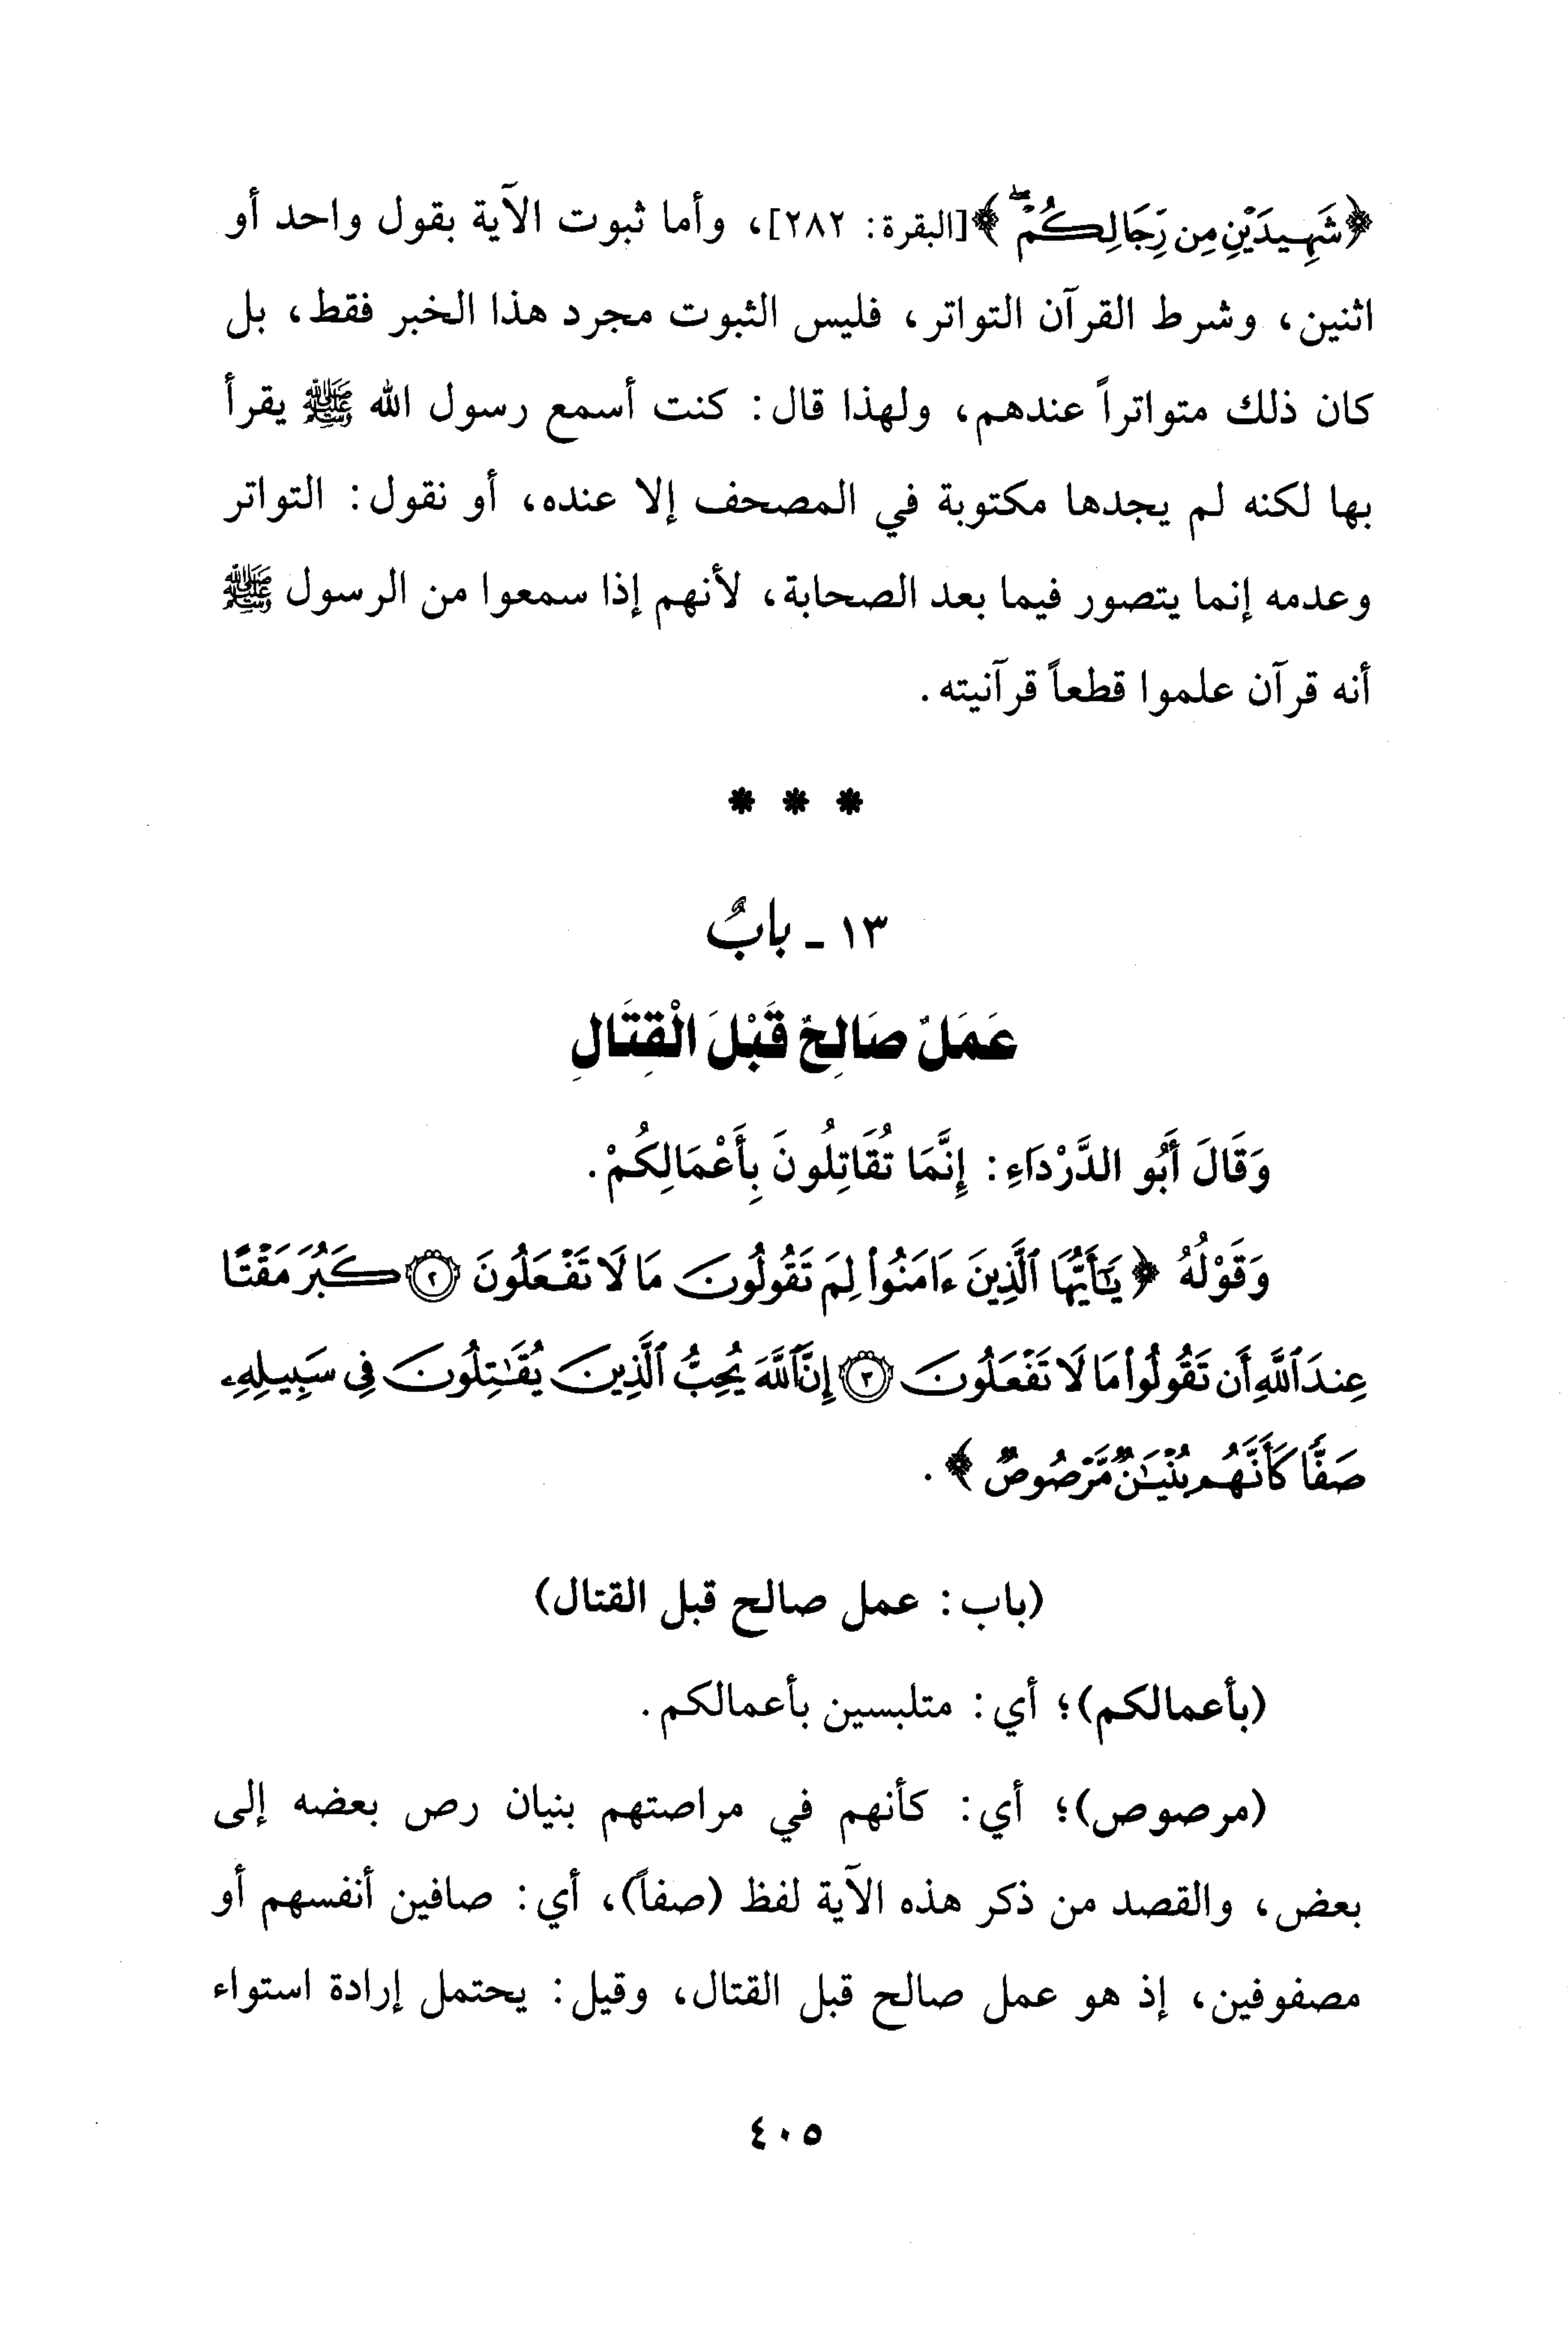 ﴿شَهِيدَيْنِ مِن رِّجَالِكُمْ ۖ﴾[البقرة: ٢٨٢]، وأما ثبوت الآية بقول واحد أو
اثنين، وشرط القرآن التواتر، فليس الثبوت مجرد هذا الخبر فقط، بل
كان ذلك متواتراً عندهم، ولهذا قال: كنت أسمع رسول الله ﷺ يقرأ
بها لكنه لم يجدها مكتوبة في المصحف إلا عنده، أو نقول: التواتر
وعدمه إنما يتصور فيما بعد الصحابة، لأنهم إذا سمعوا من الرسول ﷺ
أنه قرآن علموا قطعاً قرآنيته.
* * *
١٣ - بابٌ
عَمَلٌ صَالِحٌ قَبْلَ الْقِتَالِ
وَقَالَ أَبُو الدَّرْدَاءِ: إِنَّمَا تُقَاتِلُونَ بِأَعْمَالِكُمْ.
وَقَوْلُهُ ﴿يَٰٓأَيُّهَا ٱلَّذِينَ ءَامَنُوا۟ لِمَ تَقُولُونَ مَا لَا تَفْعَلُونَ ۝٢ كَبُرَ مَقْتًا
عِندَ ٱللَّهِ أَن تَقُولُوا۟ مَا لَا تَفْعَلُونَ ۝٣ إِنَّ ٱللَّهَ يُحِبُّ ٱلَّذِينَ يُقَٰتِلُونَ فِى سَبِيلِهِۦ
صَفًّا كَأَنَّهُم بُنْيَٰنٌ مَّرْصُوصٌ﴾.
(باب: عمل صالح قبل القتال)
(بأعمالكم)؛ أي: متلبسين بأعمالكم.
(مرصوص)؛ أي: كأنهم في مراصتهم بنيان رص بعضه إلى
بعض، والقصد من ذكر هذه الآية لفظ (صفاً)، أي: صافين أنفسهم أو
مصفوفين، إذ هو عمل صالح قبل القتال، وقيل: يحتمل إرادة استواء
٤٠٥